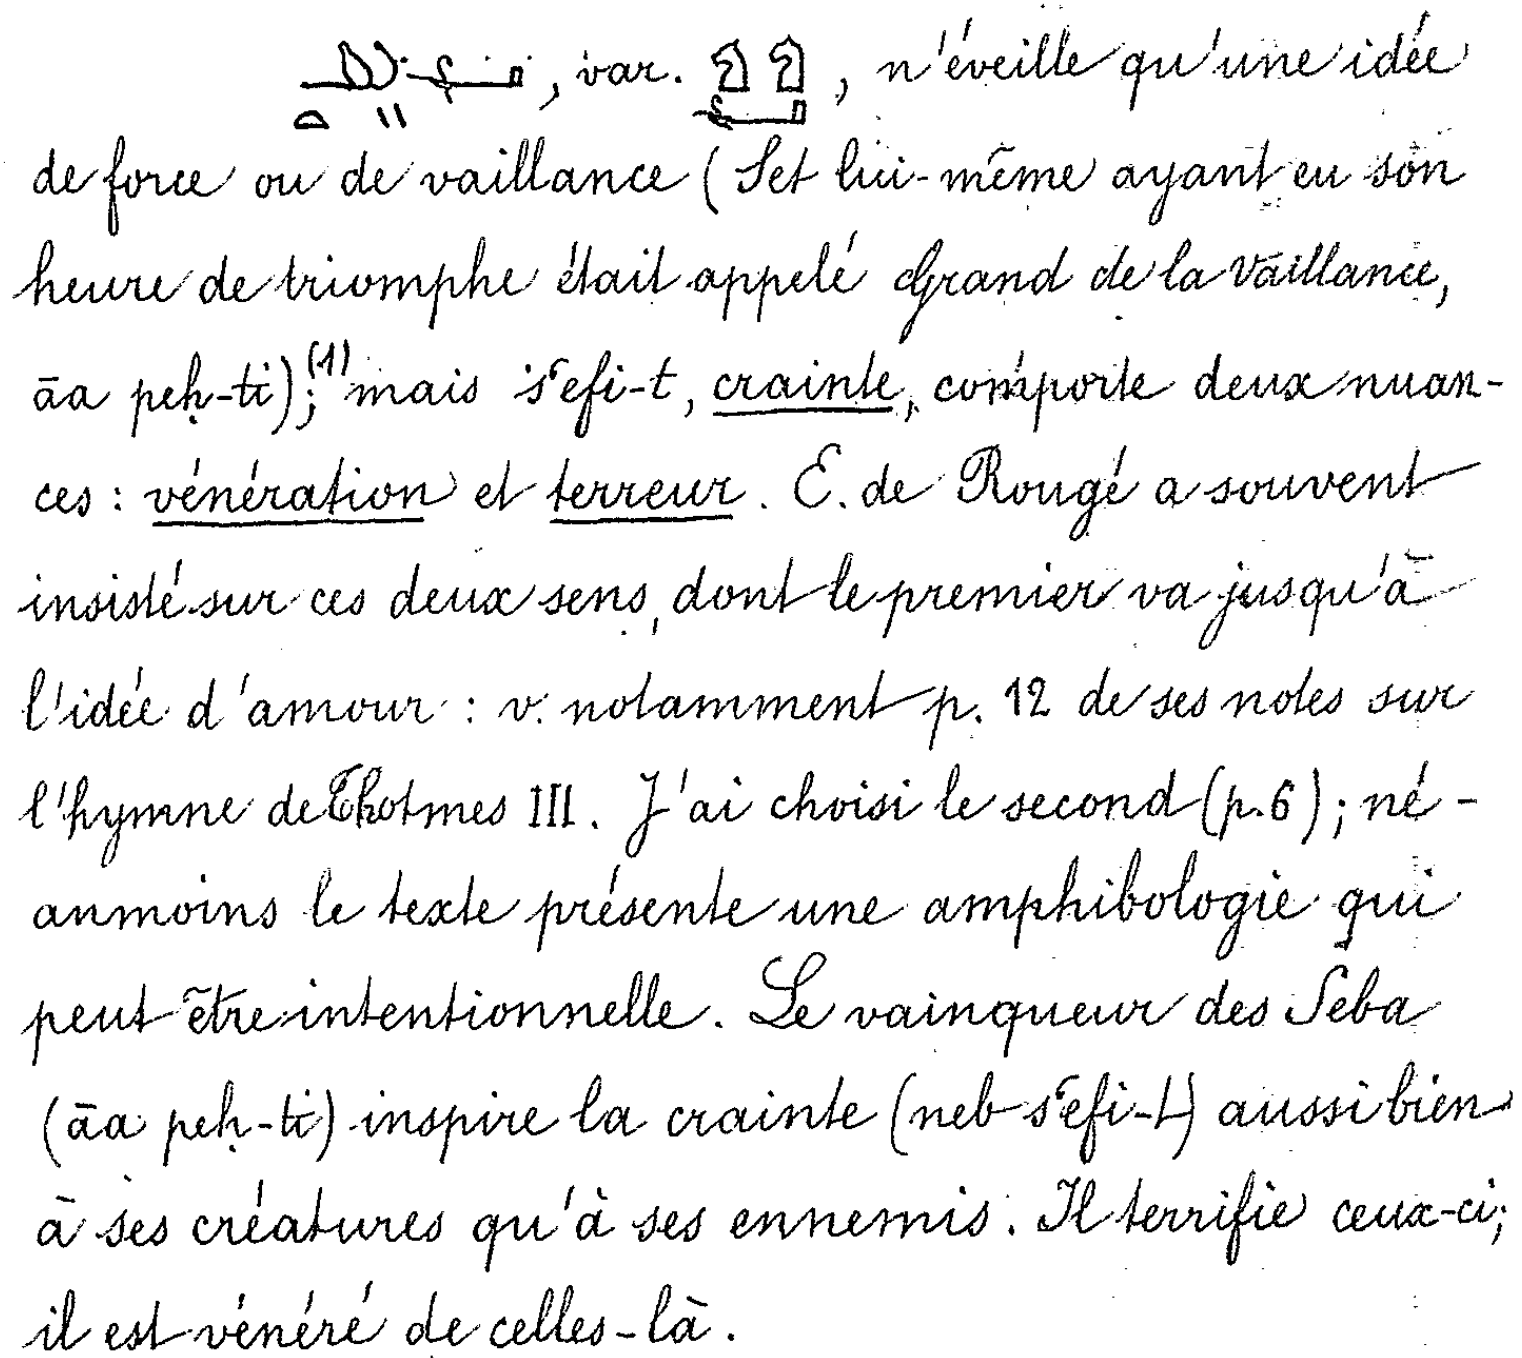 , var. , n'éveille qu'une idée
de force ou de vaillance (Set lui-même ayant eu son
heure de triomphe était appelé Grand de la Vaillance,
āa peḥ-ti);⁽¹⁾ mais s'efi-t, crainte, comporte deux nuan-
ces : vénération et terreur. E. de Rougé a souvent
insisté sur ces deux sens, dont le premier va jusqu'à
l'idée d'amour : v. notamment p. 12 de ses notes sur
l'hymne de Thotmes III. J'ai choisi le second (p. 6) ; né-
anmoins le texte présente une amphibologie qui
peut être intentionnelle. Le vainqueur des Seba
(āa peḥ-ti) inspire la crainte (neb s'efi-t) aussi bien
à ses créatures qu'à ses ennemis. Il terrifie ceux-ci;
il est vénéré de celles-là.